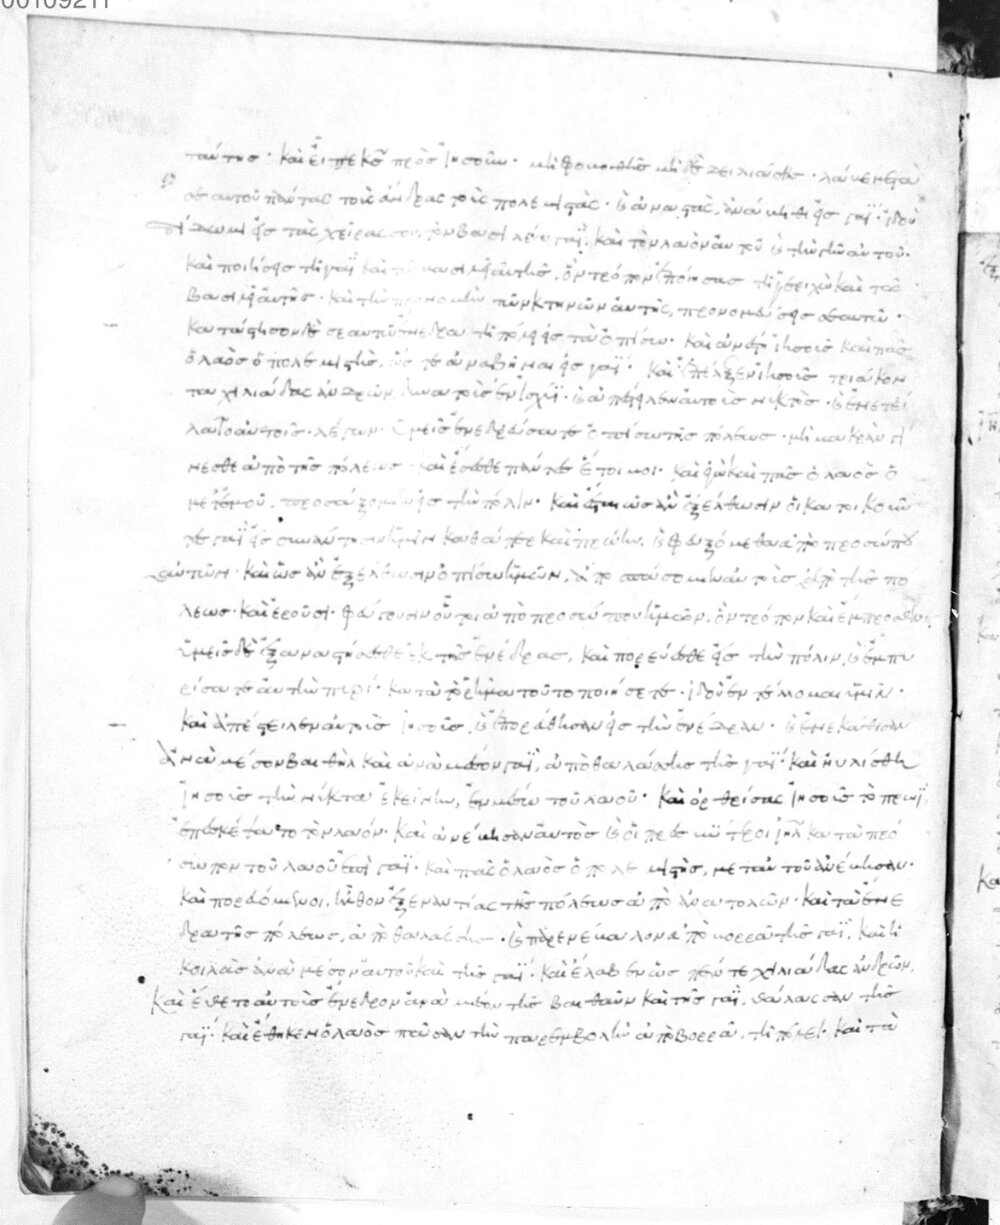 00109211
ταύτης · καὶ εἶπε κς̄ πρὸς ἰησοῦν · μὴ φοβηθῆς μηδὲ δειλιάσης · λάβε μετὰ
σεαυτοῦ πάντας τοὺς ἄνδρας τοὺς πολεμιστάς · καὶ ἀναστὰς, ἀνάβηθι εἰς γαΐ · ἰδοὺ
δίδωμι εἰς τὰς χεῖρας σου, τὸν βασιλέα γαΐ, καὶ τὸν λαὸν αὐτοῦ καὶ τὴν γῆν αὐτοῦ ·
καὶ ποιήσεις τὴ γαΐ καὶ τῶ βασιλεῖ αὐτῆς, ὃν τρόπον ἐποίησας τῆ ἱεριχὼ καὶ τῶ
βασιλεῖ αὐτῆς · καὶ τὴν προνομὴν τῶν κτηνῶν αὐτῆς, προνομεύσεις σεαυτῶ ·
κατάστησον δὲ σεαυτῶ ἔνεδρα τῆ πόλει εἰς τὰ ὀπίσω · καὶ ἀνέστη ἰησοῦς καὶ πᾶς
ὁ λαὸς ὁ πολεμιστὴς, ὥστε ἀναβῆναι εἰς γαΐ · καὶ ἐπέλεξεν ἰησοῦς τριάκον
τα χιλιάδας ἀνδρῶν, δυνατοὺς ἐν ἰσχύϊ · καὶ ἀπέστειλεν αὐτοὺς νυκτὸς · καὶ ἐνετεί
λατο αὐτοῖς · λέγων · ὑμεῖς ἐνεδρεύσατε ὀπίσω τῆς πόλεως · μὴ μακρὰν γί
νεσθε ἀπὸ τῆς πόλεως · καὶ ἔσεσθε πάντες ἕτοιμοι · καὶ ἐγὼ καὶ πᾶς ὁ λαὸς ὁ
μετ' ἐμοῦ, προσάξομεν εἰς τὴν πόλιν · καὶ ἔσται ὡς ἂν ἐξέλθωσιν οἱ κατοικοῦν
τες γαΐ εἰς συνάντησιν ἡμῖν καθάπερ καὶ πρώην, καὶ φευξόμεθα ἀπὸ προσώπου
αὐτῶν · καὶ ὡς ἂν ἐξέλθωσιν ὀπίσω ἡμῶν, ἀποσπάσομεν αὐτοὺς ἀπὸ τῆς πό
λεως · καὶ ἐροῦσι · φεύγουσιν οὗτοι ἀπὸ προσώπου ἡμῶν, ὃν τρόπον καὶ ἔμπροσθεν,
ὑμεῖς δὲ ἐξαναστήσεσθε ἐκ τῆς ἐνέδρας, καὶ πορεύεσθε εἰς τὴν πόλιν, καὶ ἐμπυ
ρίσατε αὐτὴν πυρί · κατὰ τὸ ῥῆμα τοῦτο ποιήσετε · ἰδοὺ ἐντέλλομαι ὑμῖν ·
καὶ ἀπέστειλεν αὐτοὺς ἰησοῦς, καὶ ἐπορεύθησαν εἰς τὴν ἐνέδραν · καὶ ἐνεκάθισαν
ἀνὰ μέσον βαιθὴλ καὶ ἀνὰ μέσον γαΐ, ἀπὸ θαλάσσης τῆς γαΐ · καὶ ηὐλίσθη
ἰησοῦς τὴν νύκτα ἐκείνην, ἐν μέσω τοῦ λαοῦ · καὶ ὀρθρίσας ἰησοῦς τὸ πρωῒ,
ἐπεσκέψατο τὸν λαόν · καὶ ἀνέβησαν αὐτὸς καὶ οἱ πρεσβύτεροι ἰηλ̄ κατὰ πρό
σωπον τοῦ λαοῦ ἐπὶ γαΐ · καὶ πᾶς ὁ λαὸς ὁ πολεμιστὴς, μετ' αὐτοῦ ἀνέβησαν ·
καὶ πορευόμενοι, ἦλθον ἐξεναντίας τῆς πόλεως ἀπὸ ἀνατολῶν · καὶ τὰ ἔνε
δρα τῆς πόλεως, ἀπὸ θαλάσσης · καὶ παρενέβαλον ἀπὸ βορρᾶ τῆς γαΐ, καὶ ἡ
κοιλὰς ἀνὰ μέσον αὐτοῦ καὶ τῆς γαΐ · καὶ ἔλαβεν ὡς πέντε χιλιάδας ἀνδρῶν,
καὶ ἔθετο αὐτοὺς ἔνεδρον ἀνὰ μέσον τῆς βαιθαῦν καὶ τῆς γαΐ, θάλασσαν τῆς
γαΐ · καὶ ἔθηκεν ὁ λαὸς πᾶσαν τὴν παρεμβολὴν ἀπὸ βορρᾶ, τῆ πόλει · καὶ τὰ